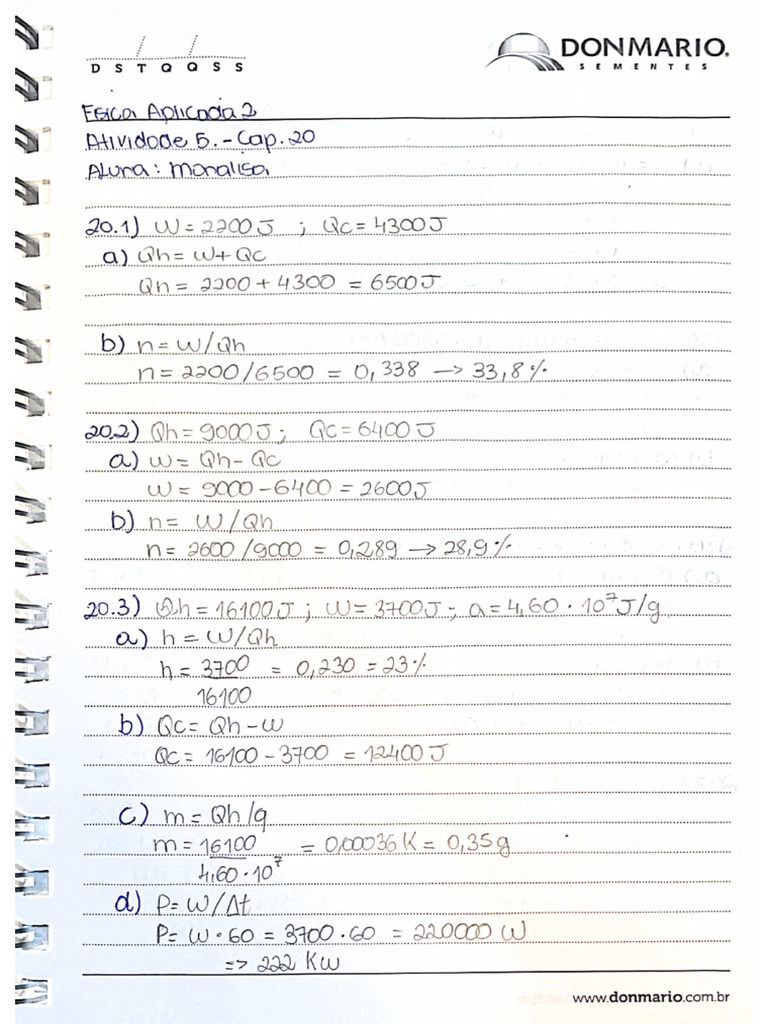 D S T Q Q S S
DONMARIO.
SEMENTES
Física Aplicada 2
Atividade 5. - Cap. 20
Aluna: Monalisa
20.1) W = 2200 J ; Qc = 4300 J
a) Qh = W + Qc
Qh = 2200 + 4300 = 6500 J
b) n = W/Qh
n = 2200/6500 = 0,338 → 33,8%
20.2) Qh = 9000 J ; Qc = 6400 J
a) W = Qh - Qc
W = 9000 - 6400 = 2600 J
b) n = W/Qh
n = 2600/9000 = 0,289 → 28,9%
20.3) Qh = 16100 J ; W = 3700 J ; a = 4,60 · 10⁷ J/g
a) h = W/Qh
h = 3700 = 0,230 = 23%
16100
b) Qc = Qh - W
Qc = 16100 - 3700 = 12400 J
c) m = Qh/q
m = 16100 = 0,00036 K = 0,35 g
4,60 · 10⁷
d) P = W/Δt
P = W · 60 = 3700 · 60 = 220000 W
=> 222 KW
www.donmario.com.br